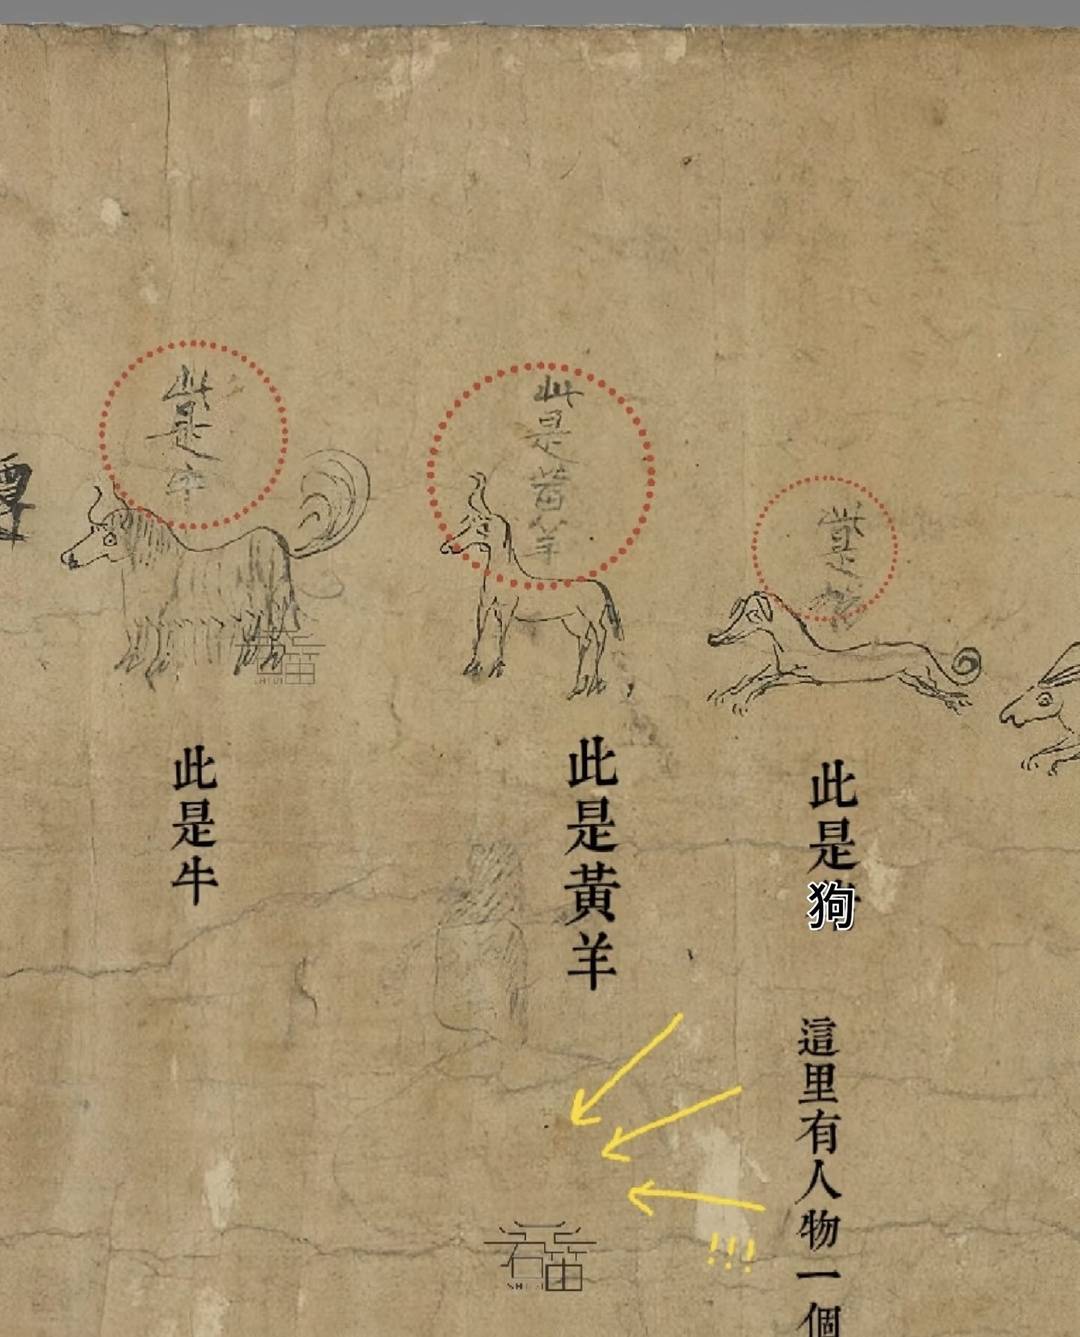 此是牛
此是黃羊
此是狗
此是牛
此是黃羊
此是狗
這里有人物一個
!!!